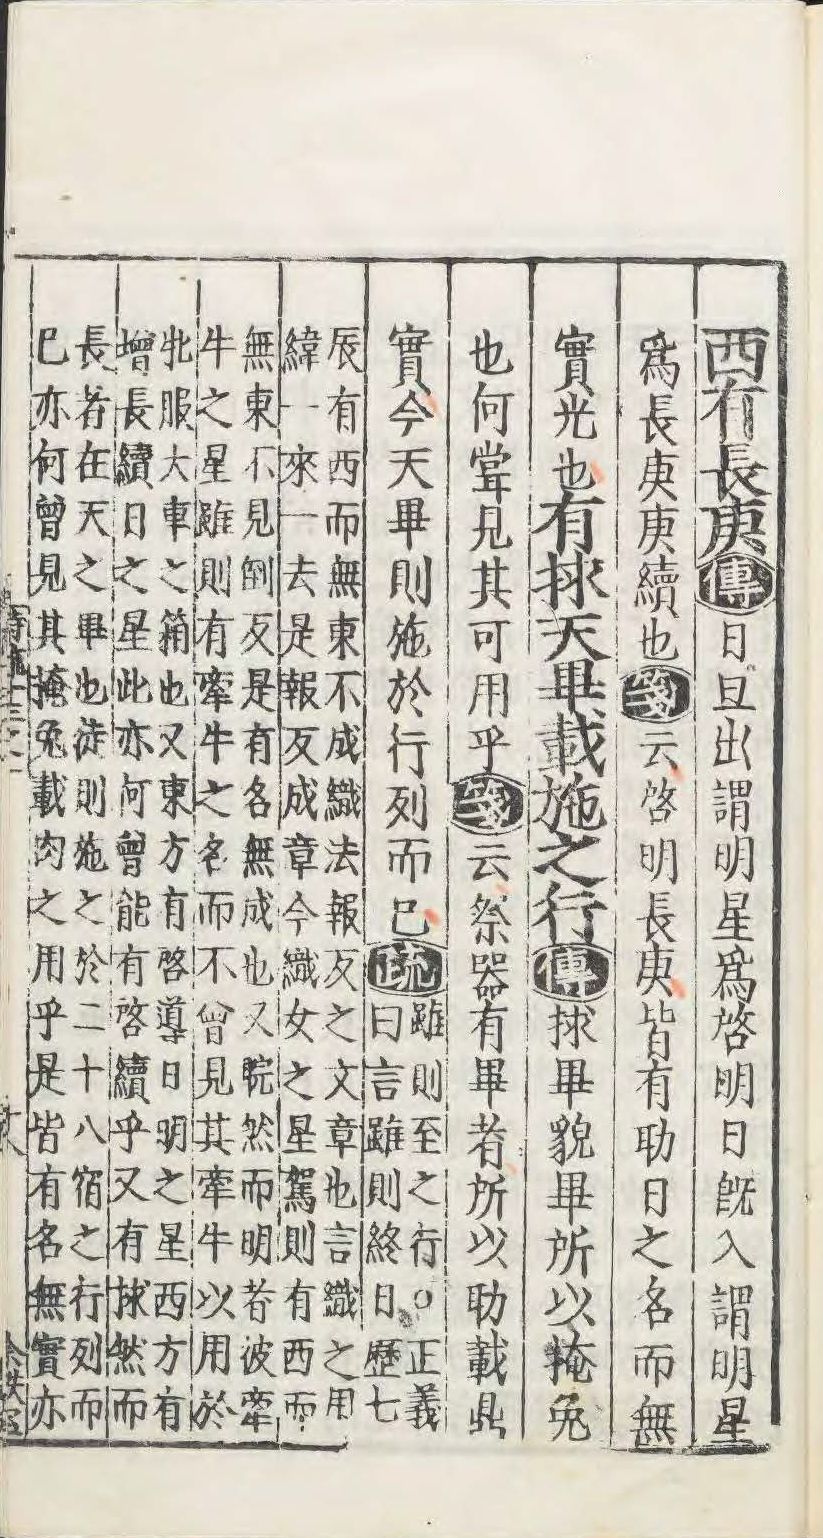 西有長庚傳日旦出謂明星爲啓明日既入謂明星
爲長庚庚續也箋云啓明長庚皆有助日之名而無
實光也有捄天畢載施之行傳捄畢貌畢所以掩兔
也何嘗見其可用乎箋云祭器有畢者所以助載鼎
實今天畢則施於行列而已疏雖則至之行○正義
曰言雖則終日歷七
辰有西而無東不成織法報反之文章也言織之用
緯一來一去是報反成章今織女之星駕則有西而
無東不見倒反是有名無成也又睆然而明者彼牽
牛之星雖則有牽牛之名而不曾見其牽牛以用於
牝服大車之箱也又東方有啓導日明之星西方有
增長續日之星此亦何曾能有啓續乎又有捄然而
長者在天之畢也徒則施之於二十八宿之行列而
已亦何曾見其掩兔載肉之用乎是皆有名無實亦